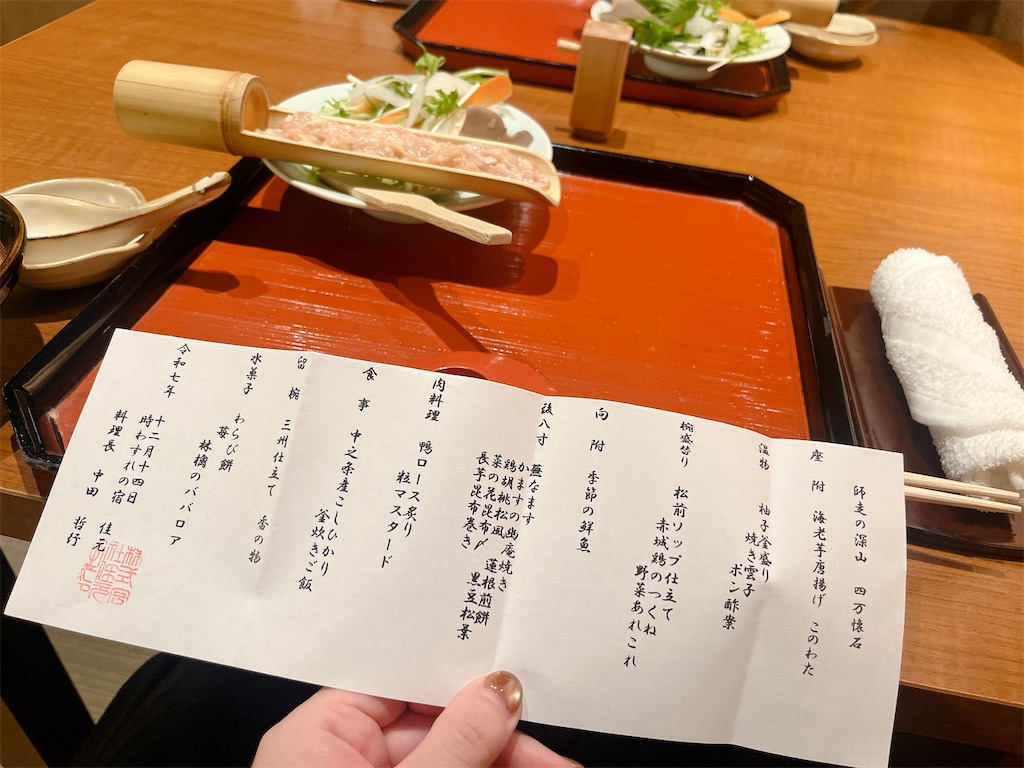 師走の深山 四万懐石
座附 海老芋唐揚げ このわた
温物 柚子釜盛り
焼き雲子
ポン酢案
椀盛替り 松前ソップ仕立て
赤城鶏のつくね
野菜あれこれ
向附 季節の鮮魚
後八寸 蕪なます
かますの幽庵焼き
鶏胡桃松風 蓮根煎餅
菜の花昆布〆 黒豆松葉
長芋昆布巻き
肉料理 鴨ロース炙り
粒マスタード
食事 中之条産こしひかり
釜炊きご飯
留椀 三州仕立て 香の物
水菓子 わらび餅
苺
林檎のババロア
令和七年 十二月十四日
時わすれの宿 佳元
料理長 中田 哲行